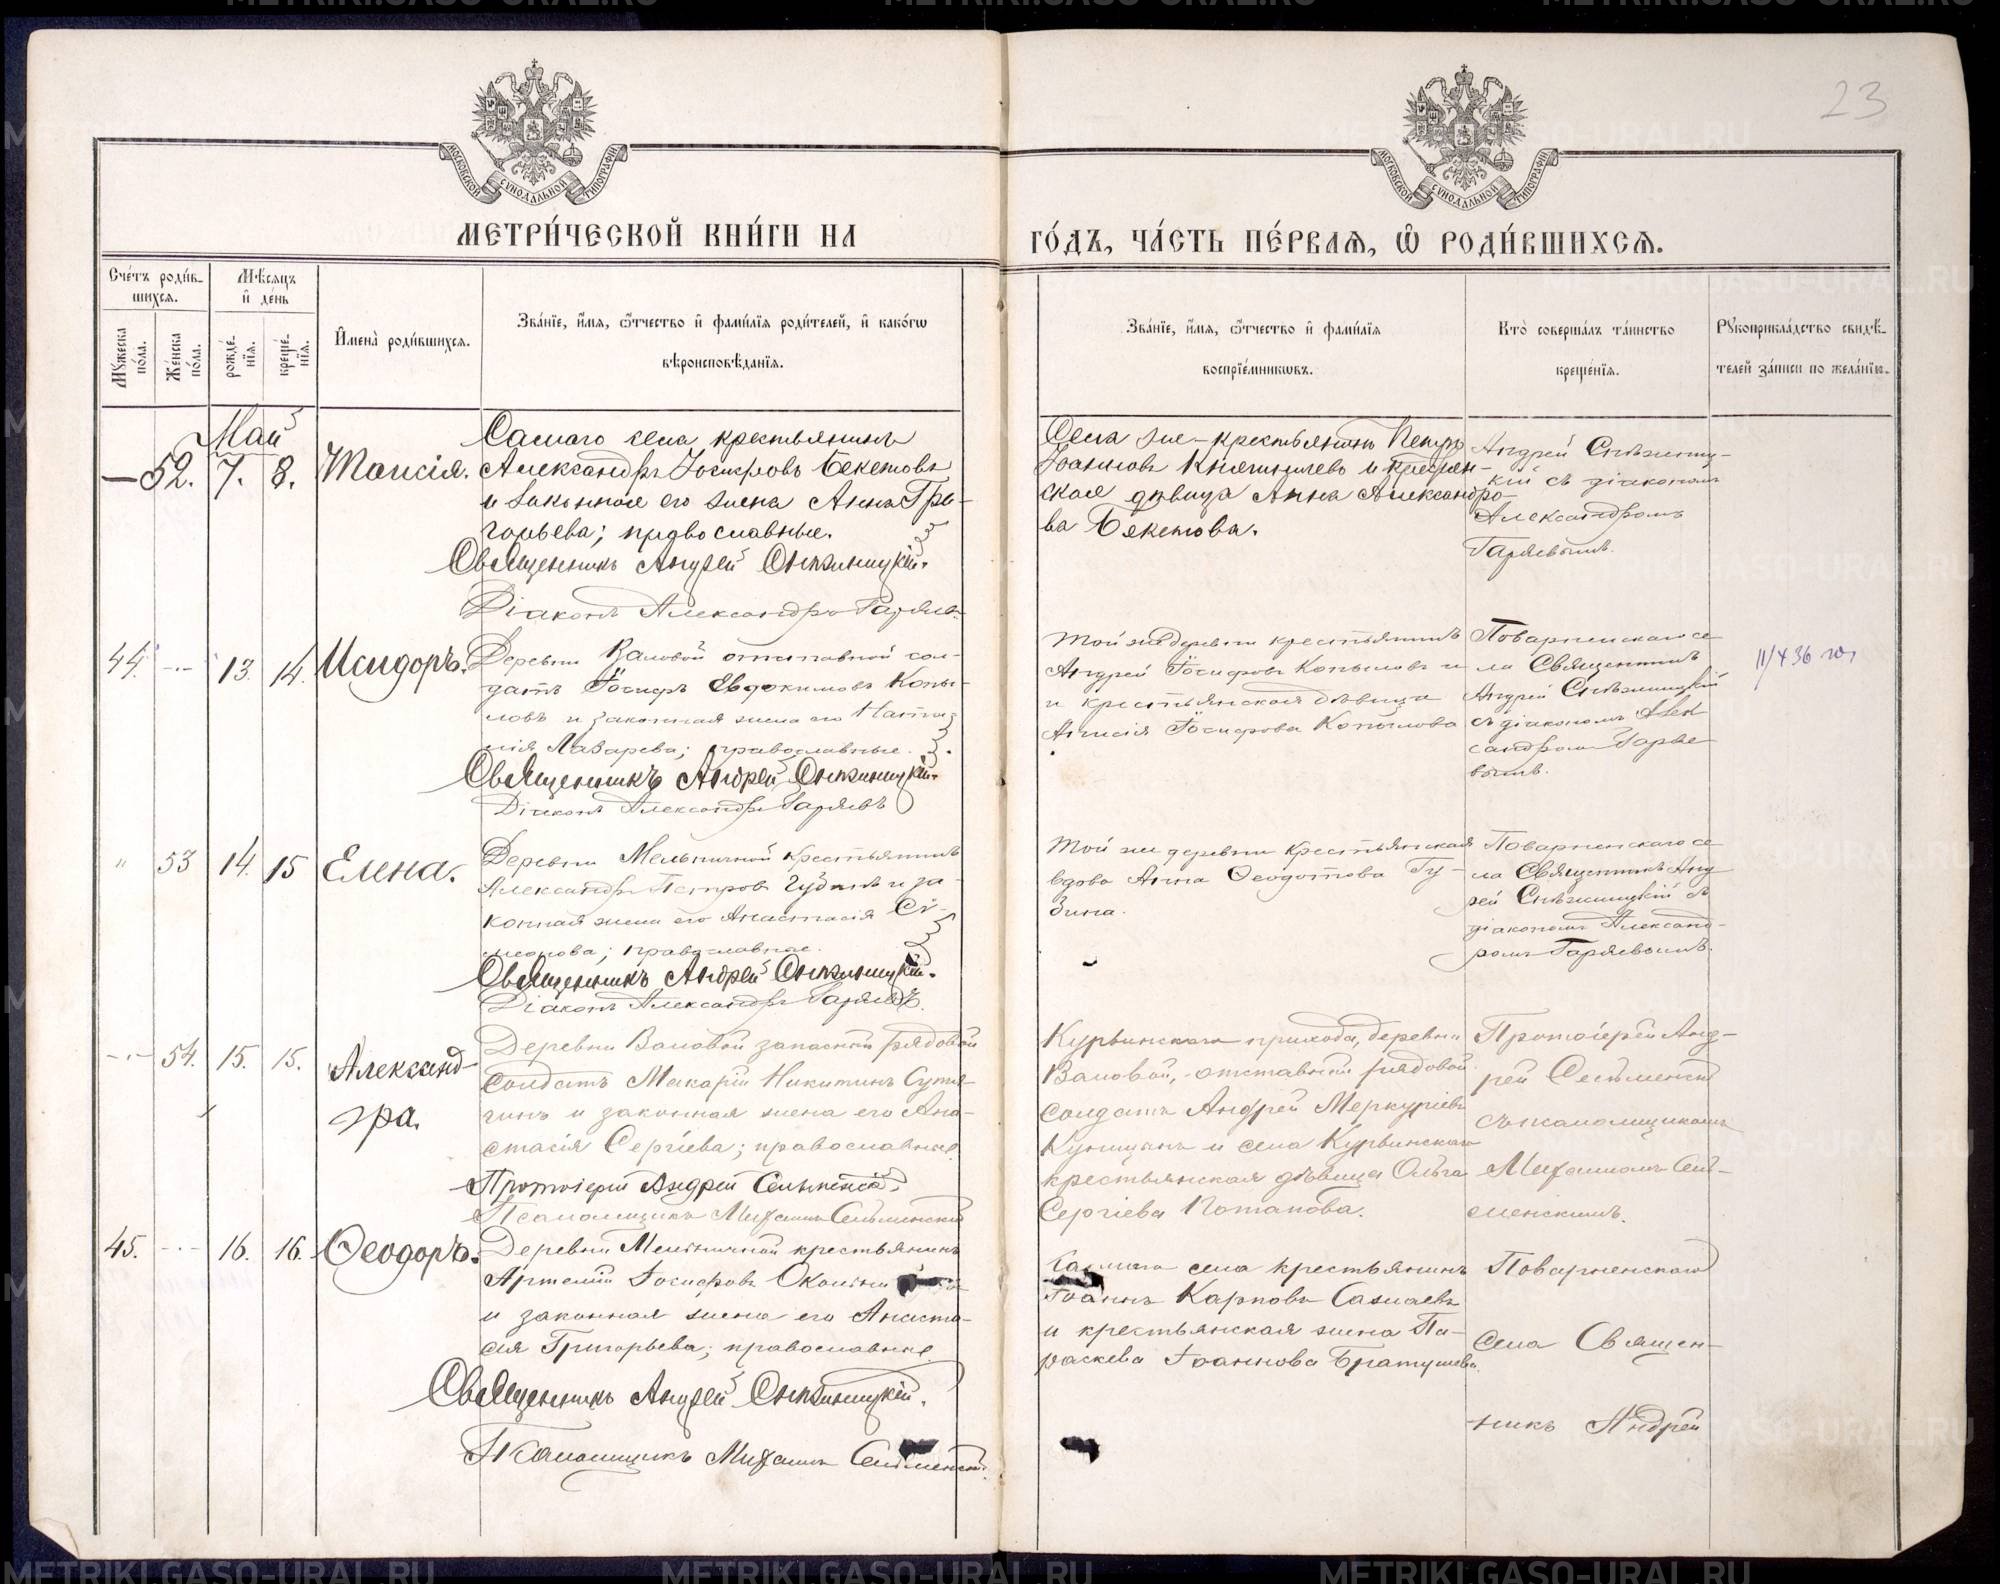 23
МОСКОВСКОЙ СѴНОДАЛЬНОЙ ТИПОГРАФІИ
МОСКОВСКОЙ СѴНОДАЛЬНОЙ ТИПОГРАФІИ
МЕТРИ́ЧЕСКОЙ КНИ́ГИ НА
ГО́ДЪ, ЧА́СТЬ ПЕ́РВАѦ, Ѽ РОДИ́ВШИХСѦ.
Сче́тъ роди́в-
шихсѧ.
Мꙋ́жеска по́ла.
Же́нска по́ла.
Мѣ́сѧцъ
и҆ де́нь
рожде́-
нїѧ.
креще́-
нїѧ.
И҆мена̀ роди́вшихсѧ.
Зва́нїе, и҆́мѧ, ѻ҆́тчество и҆ фами́лїѧ роди́телей, и҆ како́гѡ
вѣроисповѣ́данїѧ.
Зва́нїе, и҆́мѧ, ѻ҆́тчество и҆ фами́лїѧ
воспрїе́мникѡвъ.
Кто̀ соверша́лъ та́инство
креще́нїѧ.
Рꙋкоприкла́дство свидѣ́-
телей за́писи по жела́нїю.
Май
52. 7. 8. Таисія.
Самаго села крестьянинъ
Александръ Іосифовъ Бекетовъ
и законная его жена Анна Гри-
горьева; православные.
Священникъ Андрей Снѣжницкій.
Діаконъ Александръ Гаряевъ
Села же крестьянинъ Петръ
и крестьян-
ская дѣвица Анна Александро-
ва Бекетова.
Андрей Снѣжниц-
кій съ діакономъ
Александромъ
Гаряевымъ.
44. 13. 14. Исидоръ.
Деревни Валовой отставной сол-
датъ Іосифъ Евдокимовъ Копы-
ловъ и законная жена его Ната-
лія Лазарева; православные.
Священникъ Андрей Снѣжницкій.
Діаконъ Александръ Гаряевъ
Той же деревни крестьянинъ
Андрей Іосифовъ Копыловъ и
и крестьянская дѣвица
Іосифова Копылова
Поварненскаго се
ла Священникъ
Андрей Снѣжницкій
съ діакономъ Алек
сандромъ Гаряе
вымъ.
53 14. 15 Елена.
Деревни Мельничной крестьянинъ
Александръ Петровъ Гузинъ и за-
конная жена его Анастасія Си-
меонова; православные.
Священникъ Андрей Снѣжницкій.
Діаконъ Александръ Гаряевъ.
Той же деревни крестьянская
вдова Анна Ѳеодотова Гу-
зина.
Поварненскаго се
ла Священникъ Анд
рей Снѣжницкій съ
діакономъ Александ-
ромъ Гаряевымъ.
54. 15. 15. Александ-
ра.
Деревни Валовой запасный рядовой
солдатъ Макарій Никитинъ Сутя-
гинъ и законная жена его Ана-
стасія Сергіева; православные.
Протоіерей Андрей Сельменскій.
Псаломщикъ Михаилъ Сельменскій
Курьинскаго прихода, деревни
Валовой, отставный рядовой
солдатъ Андрей Меркуріевъ
Куницынъ и села Курьинскаго
крестьянская дѣвица Ольга
Сергіева Потапова.
Протоіерей Анд-
рей Сельменскій
съ псаломщикомъ
Михаиломъ Сель-
менскимъ.
45. 16. 16. Ѳеодоръ.
Деревни Мельничной крестьянинъ
Артемій Іосифовъ
и законная жена его Анаста-
сія Григорьева; православные.
Священникъ Андрей Снѣжницкій.
Псаломщикъ Михаилъ Сельменскій.
Самаго села крестьянинъ
Іоаннъ Карповъ Сазнаевъ
и крестьянская жена Па-
раскева Іоаннова Братушева.
Поварненскаго
села Священ-
никъ Андрей
METRIKI.GASO-URAL.RU